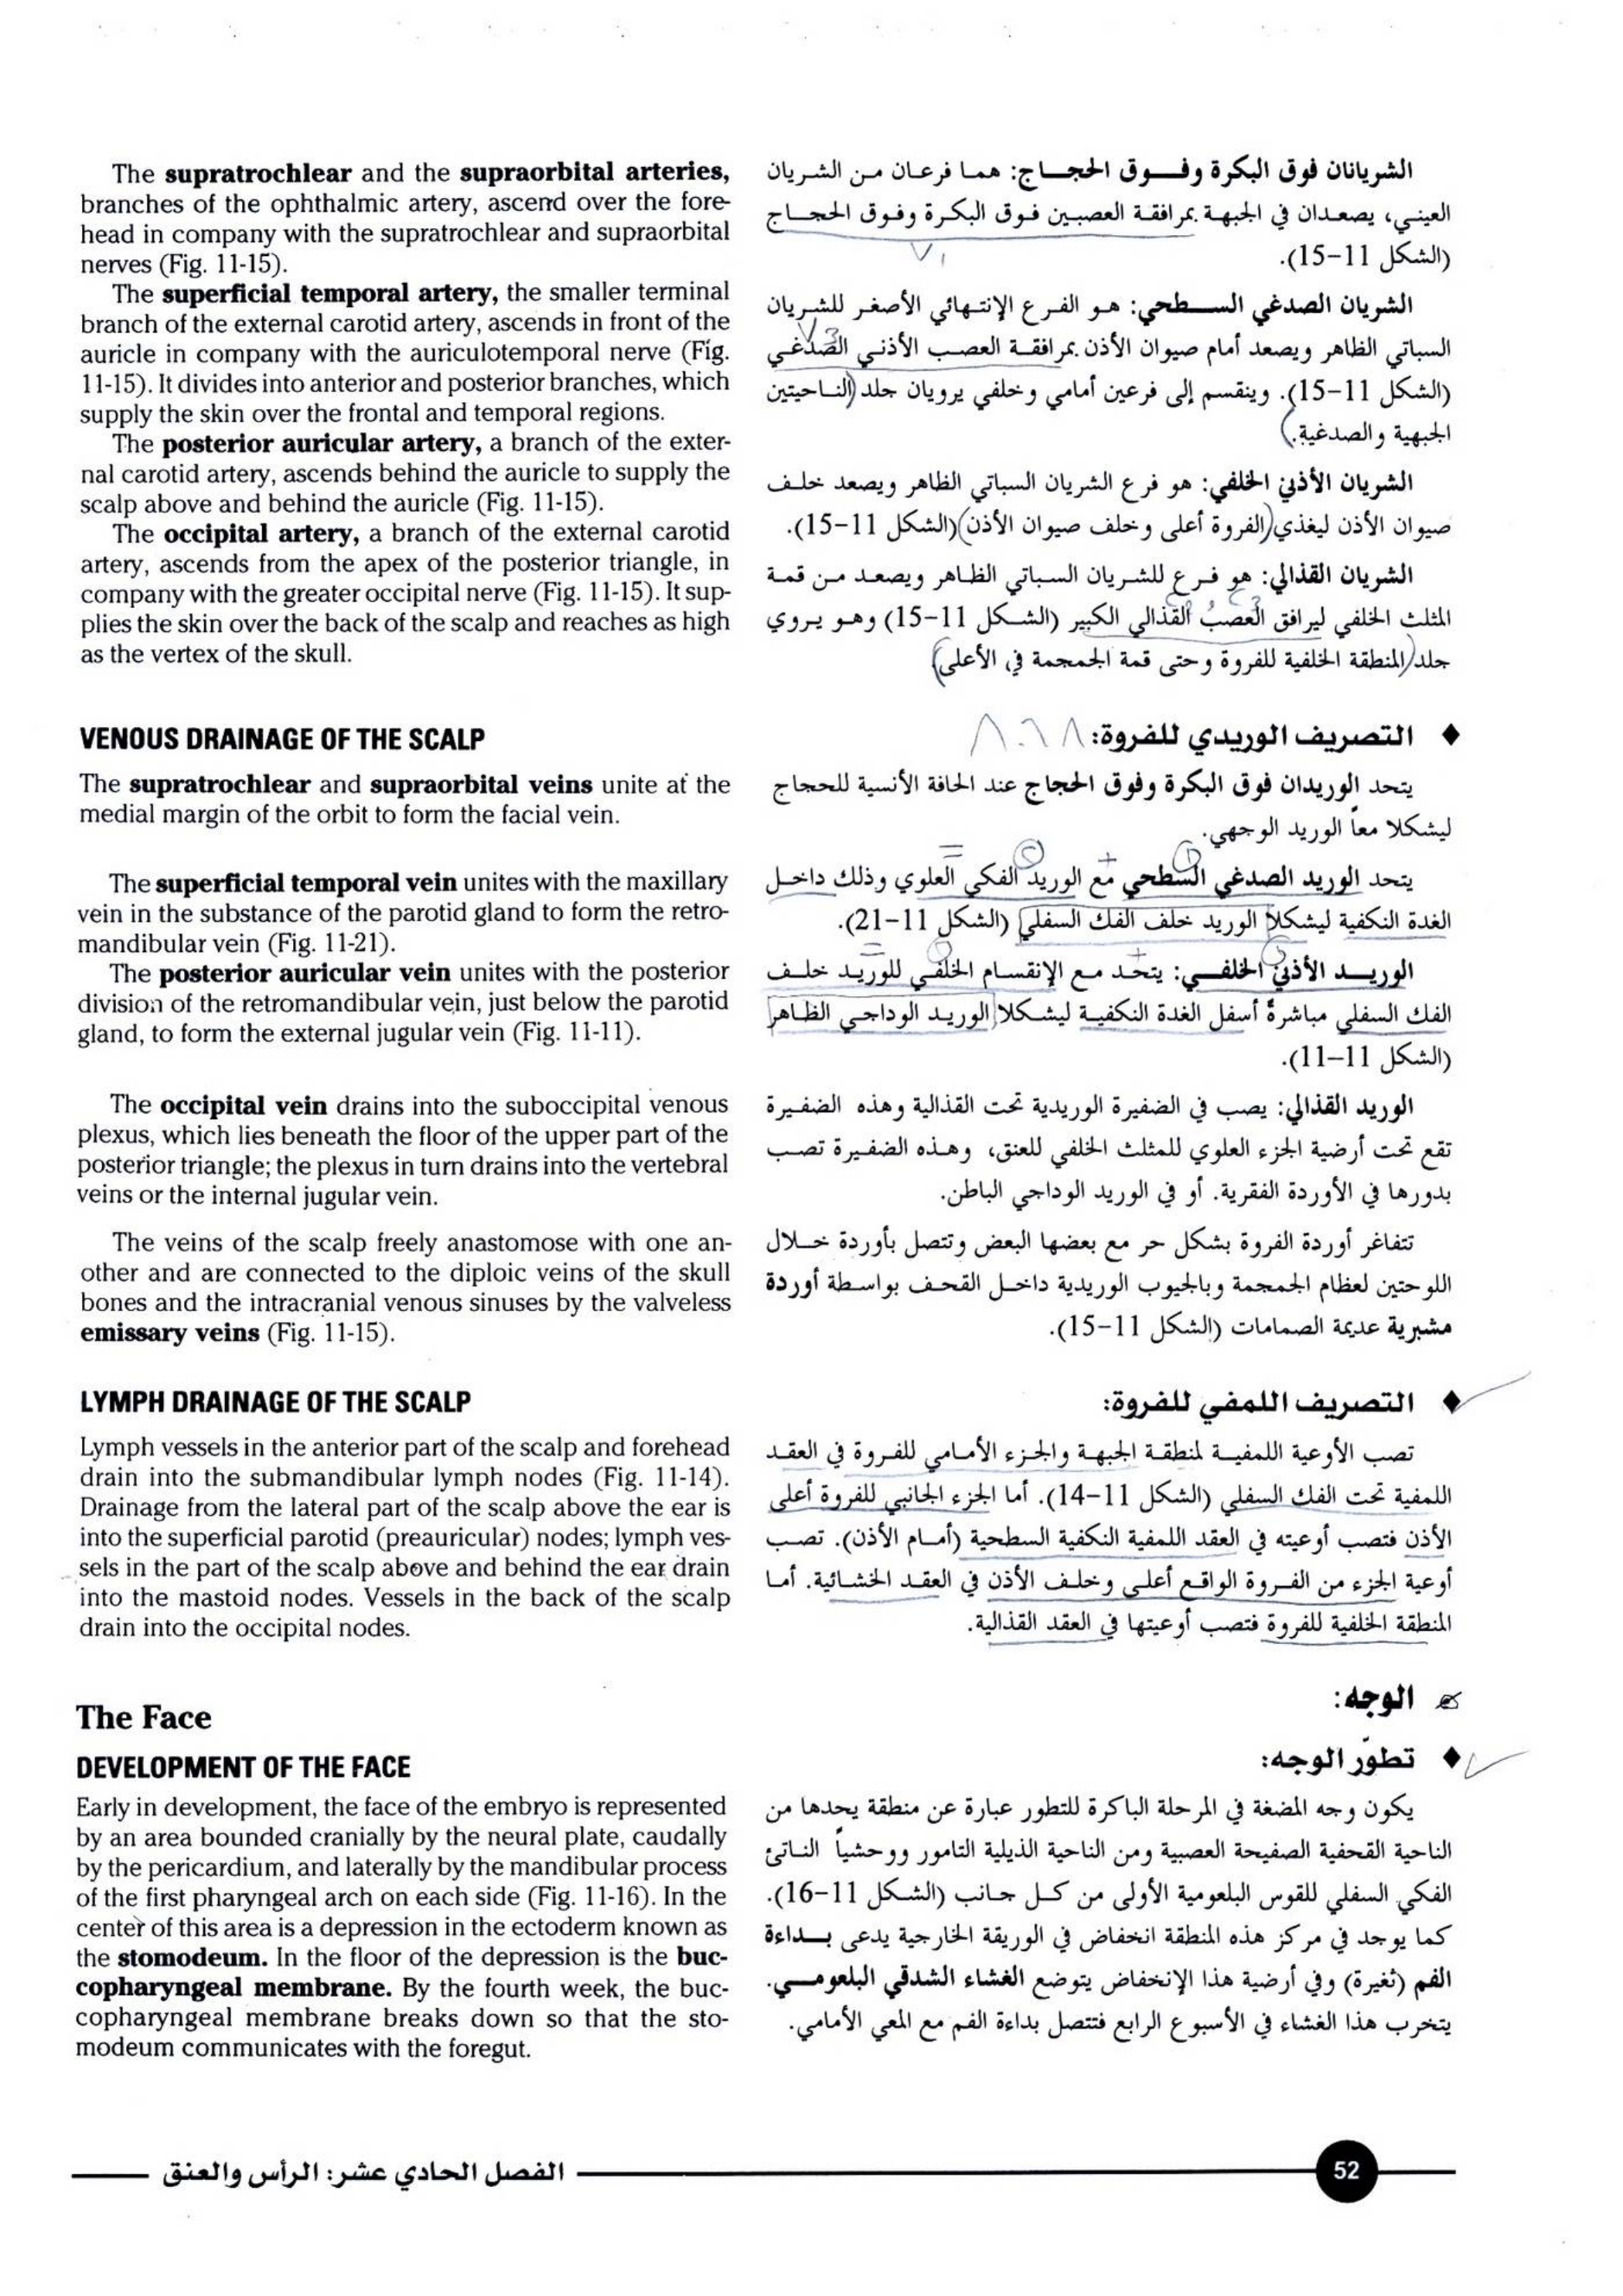 The supratrochlear and the supraorbital arteries,
branches of the ophthalmic artery, ascend over the fore-
head in company with the supratrochlear and supraorbital
nerves (Fig. 11-15).
The superficial temporal artery, the smaller terminal
branch of the external carotid artery, ascends in front of the
auricle in company with the auriculotemporal nerve (Fig.
11-15). It divides into anterior and posterior branches, which
supply the skin over the frontal and temporal regions.
The posterior auricular artery, a branch of the exter-
nal carotid artery, ascends behind the auricle to supply the
scalp above and behind the auricle (Fig. 11-15).
The occipital artery, a branch of the external carotid
artery, ascends from the apex of the posterior triangle, in
company with the greater occipital nerve (Fig. 11-15). It sup-
plies the skin over the back of the scalp and reaches as high
as the vertex of the skull.
VENOUS DRAINAGE OF THE SCALP
The supratrochlear and supraorbital veins unite at the
medial margin of the orbit to form the facial vein.
The superficial temporal vein unites with the maxillary
vein in the substance of the parotid gland to form the retro-
mandibular vein (Fig. 11-21).
The posterior auricular vein unites with the posterior
division of the retromandibular vein, just below the parotid
gland, to form the external jugular vein (Fig. 11-11).
The occipital vein drains into the suboccipital venous
plexus, which lies beneath the floor of the upper part of the
posterior triangle; the plexus in turn drains into the vertebral
veins or the internal jugular vein.
The veins of the scalp freely anastomose with one an-
other and are connected to the diploic veins of the skull
bones and the intracranial venous sinuses by the valveless
emissary veins (Fig. 11-15).
LYMPH DRAINAGE OF THE SCALP
Lymph vessels in the anterior part of the scalp and forehead
drain into the submandibular lymph nodes (Fig. 11-14).
Drainage from the lateral part of the scalp above the ear is
into the superficial parotid (preauricular) nodes; lymph ves-
sels in the part of the scalp above and behind the ear drain
into the mastoid nodes. Vessels in the back of the scalp
drain into the occipital nodes.
The Face
DEVELOPMENT OF THE FACE
Early in development, the face of the embryo is represented
by an area bounded cranially by the neural plate, caudally
by the pericardium, and laterally by the mandibular process
of the first pharyngeal arch on each side (Fig. 11-16). In the
center of this area is a depression in the ectoderm known as
the stomodeum. In the floor of the depression is the buc-
copharyngeal membrane. By the fourth week, the buc-
copharyngeal membrane breaks down so that the sto-
modeum communicates with the foregut.
الشريانان فوق البكرة وفوق الحجاج: هما فرعان من الشريان
العيني، يصعدان في الجبهة بمرافقة العصبين فوق البكرة وفوق الحجاج
(الشكل 11-15).
V1
الشريان الصدغي السطحي: هو الفرع الإنتهائي الأصغر للشريان
V3
السباتي الظاهر ويصعد أمام صيوان الأذن بمرافقة العصب الأذني الصدغي
(الشكل 11-15). وينقسم إلى فرعين أمامي وخلفي يرويان جلد (الناحيتين
الجبهية والصدغية.)
الشريان الأذني الخلفي: هو فرع الشريان السباتي الظاهر ويصعد خلف
صيوان الأذن ليغذي (الفروة أعلى وخلف صيوان الأذن) (الشكل 11-15).
الشريان القذالي: هو فرع للشريان السباتي الظاهر ويصعد من قمة
المثلث الخلفي ليرافق العصب القذالي الكبير (الشكل 11-15) وهو يروي
جلد (المنطقة الخلفية للفروة وحتى قمة الجمجمة في الأعلى)
♦ التصريف الوريدي للفروة:
يتحد الوريدان فوق البكرة وفوق الحجاج عند الحافة الأنسية للحجاج
ليشكلا معاً الوريد الوجهي.
يتحد الوريد الصدغي السطحي مع الوريد الفكي العلوي وذلك داخل
الغدة النكفية ليشكلا الوريد خلف الفك السفلي (الشكل 11-21).
الوريد الأذني الخلفي: يتحد مع الإنقسام الخلفي للوريد خلف
الفك السفلي مباشرةً أسفل الغدة النكفية ليشكلا الوريد الوداجي الظاهر
(الشكل 11-11).
الوريد القذالي: يصب في الضفيرة الوريدية تحت القذالية وهذه الضفيرة
تقع تحت أرضية الجزء العلوي للمثلث الخلفي للعنق، وهذه الضفيرة تصب
بدورها في الأوردة الفقرية. أو في الوريد الوداجي الباطن.
تتفاغر أوردة الفروة بشكل حر مع بعضها البعض وتتصل بأوردة خلال
اللوحتين لعظام الجمجمة وبالجيوب الوريدية داخل القحف بواسطة أوردة
مشبرية عديمة الصمامات (الشكل 11-15).
♦ التصريف اللمفي للفروة:
تصب الأوعية اللمفية لمنطقة الجبهة والجزء الأمامي للفروة في العقد
اللمفية تحت الفك السفلي (الشكل 11-14). أما الجزء الجانبي للفروة أعلى
الأذن فتصب أوعيته في العقد اللمفية النكفية السطحية (أمام الأذن). تصب
أوعية الجزء من الفروة الواقع أعلى وخلف الأذن في العقد الخشائية. أما
المنطقة الخلفية للفروة فتصب أوعيتها في العقد القذالية.
الوجه:
♦ تطوّر الوجه:
يكون وجه المضغة في المرحلة الباكرة للتطور عبارة عن منطقة يحدها من
الناحية القحفية الصفيحة العصبية ومن الناحية الذيلية التامور ووحشياً الناتئ
الفكي السفلي للقوس البلعومية الأولى من كل جانب (الشكل 11-16).
كما يوجد في مركز هذه المنطقة انخفاض في الوريقة الخارجية يدعى بداءة
الفم (ثغيرة) وفي أرضية هذا الإنخفاض يتوضع الغشاء الشدقي البلعومي.
يتخرب هذا الغشاء في الأسبوع الرابع فتتصل بداءة الفم مع المعي الأمامي.
الفصل الحادي عشر: الرأس والعنق
52